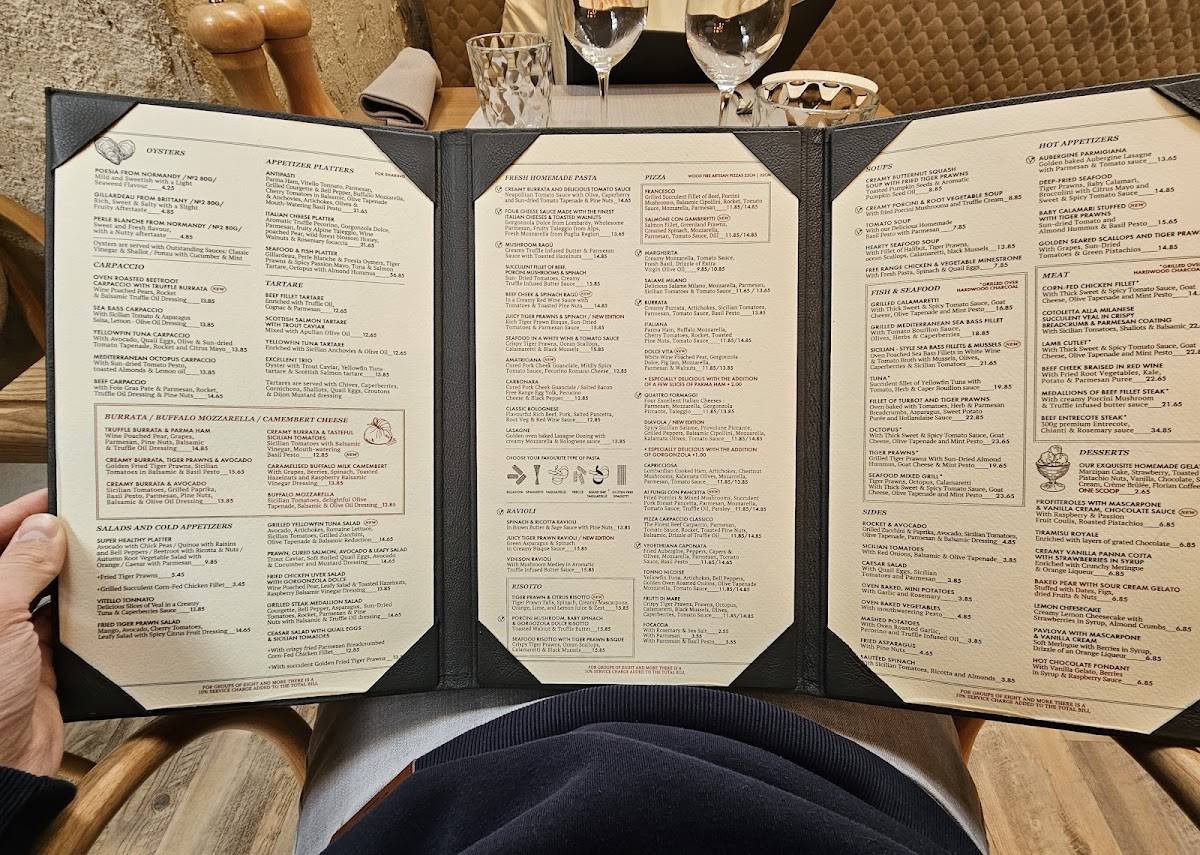 OYSTERS
POESIA FROM NORMANDY /Nº2 80G/
Mild and Sweetish with a Light
Seaweed Flavour___4.25
GILLARDEAU FROM BRITTANY /Nº2 80G/
Rich, Sweet & Salty with a Slight
Fruity Aftertaste___4.85
PERLE BLANCHE FROM NORMANDY /Nº2 80G/
Sweet and Fresh flavour,
with a nutty aftertaste___4.85
Oysters are served with Outstanding Sauces: Classic
Vinegar & Shallot / Ponzu with Cucumber & Mint
CARPACCIO
OVEN ROASTED BEETROOT
CARPACCIO WITH TRUFFLE BURRATA NEW
Wine Poached Pears, Rocket
& Balsamic Truffle Oil Dressing___13.85
SEA BASS CARPACCIO
With Sicilian Tomato & Asparagus
Salsa, Lemon - Olive Oil Dressing___13.85
YELLOWFIN TUNA CARPACCIO
With Avocado, Quail Eggs, Olive & Sun-dried
Tomato Tapenade, Rocket and Citrus Mayo___13.85
MEDITERRANEAN OCTOPUS CARPACCIO
With Sun-dried Tomato Pesto,
toasted Almonds & Lemon oil___13.85
BEEF CARPACCIO
with Foie Gras Pate & Parmesan, Rocket,
Truffle Oil Dressing & Pine Nuts___14.65
APPETIZER PLATTERS
FOR SHARING
ANTIPASTI
Parma Ham, Vitello Tonnato, Parmesan,
Grilled Courgette & Bell Pepper, Buffalo Mozzarella,
Cherry Tomatoes in Balsamic, Olive Tapenade
& Anchovies, Artichokes, Olives &
Mouth-Watering Basil Pesto___31.65
ITALIAN CHEESE PLATTER
Aromatic Truffle Pecorino, Gorgonzola Dolce,
Parmesan, fruity Alpine Taleggio, Wine
poached Pear, wild forest blossom Honey,
Walnuts & Rosemary focaccia___31.65
SEAFOOD & FISH PLATTER
Gillardeau, Perle Blanche & Poesia Oysters, Tiger
Prawns & Spicy Passion Mayo, Tuna & Salmon
Tartare, Octopus with Almond Hummus___36.65
TARTARE
BEEF FILLET TARTARE
Enriched with Truffle Oil,
Cognac & Parmesan___12.65
SCOTTISH SALMON TARTARE
WITH TROUT CAVIAR
Mixed with Apulian Olive Oil___12.65
YELLOWFIN TUNA TARTARE
Enriched with Sicilian Anchovies & Olive Oil___12.65
EXCELLENT TRIO
Oyster with Trout Caviar, Yellowfin Tuna
Tartare & Scottish Salmon tartare___13.85
Tartares are served with Chives, Caperberries,
Cornichons, Shallots, Quail Eggs, Croutons
& Dijon Mustard dressing
BURRATA / BUFFALO MOZZARELLA / CAMEMBERT CHEESE
TRUFFLE BURRATA & PARMA HAM
Wine Poached Pear, Grapes,
Parmesan, Pine Nuts, Balsamic
& Truffle Oil Dressing___14.85
CREAMY BURRATA, TIGER PRAWNS & AVOCADO
Golden Fried Tiger Prawns, Sicilian
Tomatoes in Balsamic & Basil Pesto___15.65
CREAMY BURRATA & AVOCADO
Sicilian Tomatoes, Grilled Paprika,
Basil Pesto, Parmesan, Pine Nuts,
Balsamic & Olive Oil Dressing___13.85
CREAMY BURRATA & TASTEFUL
SICILIAN TOMATOES
Sicilian Tomatoes with Balsamic
Vinegar, Mouth-watering
Basil Pesto___12.85 NEW
CARAMELISED BUFFALO MILK CAMEMBERT
With Grapes, Berries, Spinach, Toasted
Hazelnuts and Raspberry Balsamic
Vinegar Dressing___13.85
BUFFALO MOZZARELLA
Sicilian Tomatoes, delightful Olive
Tapenade, Balsamic & Basil Dressing___13.85
SALADS AND COLD APPETIZERS
SUPER HEALTHY PLATTER
Avocado with Chick Peas / Quinoa with Raisins
and Bell Peppers / Beetroot with Ricotta & Nuts /
Autumn Root Vegetable Salad with
Orange / Caesar with Parmesan___9.85
+Fried Tiger Prawns___5.45
+Grilled Succulent Corn-Fed Chicken Fillet___3.65
VITELLO TONNATO
Delicious Slices of Veal in a Creamy
Tuna & Caperberries Sauce___12.85
FRIED TIGER PRAWN SALAD
Mango, Avocado, Cherry Tomatoes,
Leafy Salad with Spicy Citrus Fruit Dressing___14.65
GRILLED YELLOWFIN TUNA SALAD NEW
Avocado, Artichokes, Romaine Lettuce,
Sicilian Tomatoes, Shallots, Grilled Zucchini,
Olive Tapenade & Balsamic Reduction___14.65
PRAWN, CURED SALMON, AVOCADO & LEAFY SALAD
Trout Caviar, Soft Boiled Quail Eggs, Avocado
& Cucumber and Mustard Dressing___14.65
FRIED CHICKEN LIVER SALAD
WITH GORGONZOLA DOLCE
Wine Poached Pear, Leafy Salad & Toasted Hazelnuts,
Raspberry Balsamic Vinegar Dressing___13.85
GRILLED STEAK MEDALLION SALAD
Courgette, Bell Pepper, Asparagus, Sun-Dried
Tomatoes, Rocket, Parmesan & Pine
Nuts with Balsamic & Olive Dressing___14.65
CAESAR SALAD WITH QUAIL EGGS
& SICILIAN TOMATOES
+With crispy fried Parmesan Breadcrumbed
Corn-Fed Chicken Fillet___12.85
+With succulent Golden Fried Tiger Prawns
FOR GROUPS OF EIGHT AND MORE THERE IS A
10% SERVICE CHARGE ADDED TO THE TOTAL BILL
FRESH HOMEMADE PASTA
CREAMY BURRATA AND DELICIOUS TOMATO SAUCE
Neapolitan Tomato Sauce with Olive, Caperberry
and Sun-dried Tomato Tapenade & Pine Nuts___14.65
FOUR CHEESE SAUCE MADE WITH THE FINEST
ITALIAN CHEESES & TOASTED WALNUTS
Gorgonzola Dolce from Lombardy, Wholesome
Parmesan, Fruity Taleggio from Alps,
Fresh Mozzarella from Puglia Region___13.65
MUSHROOM RAGÙ
Creamy Truffle Infused Butter & Parmesan
Sauce with Toasted Hazelnuts___14.85
SUCCULENT FILLET OF BEEF,
PORCINI MUSHROOMS & SPINACH
Sun-Dried Tomatoes, Creamy
Truffle Infused Butter Sauce___15.85
BEEF CHEEK & SPINACH RAGU NEW
In a Creamy Red Wine Sauce with
Tomatoes & Toasted Pine Nuts___14.85
JUICY TIGER PRAWNS & SPINACH / NEW EDITION
Rich Tiger Prawn Bisque, Sun-Dried
Tomatoes & Parmesan Cheese___15.85
SEAFOOD IN A WHITE WINE & TOMATO SAUCE
Crispy Tiger Prawns, Ocean Scallops,
Calamaretti & Black Mussels___15.85
AMATRICIANA NEW
Cured Pork Cheek Guanciale, Mildly Spicy
Tomato Sauce, Pecorino Romano Cheese___12.85
CARBONARA
Cured Pork Cheek Guanciale / Salted Bacon
Free Range Egg Yolk, Pecorino
Cheese & Black Pepper___12.85
CLASSIC BOLOGNESE
Flavoured Rich Beef, Pork, Salted Pancetta,
Root Veg & Red Wine Sauce___12.85
LASAGNE
Golden oven baked Lasagne Oozing with
creamy Mozzarella & Bolognese sauce___13.85
CHOOSE YOUR FAVOURITE TYPE OF PASTA
RIGATONI SPAGHETTI TAGLIATELLE FARFALLE
RAVIOLI
SPINACH & RICOTTA RAVIOLI
In Brown Butter & Sage Sauce with Pine Nuts___12.85
JUICY TIGER PRAWN RAVIOLI / NEW EDITION
Green Asparagus & Spinach,
in Creamy Bisque Sauce___15.85
VENISON RAVIOLI
With Mushroom Medley in Aromatic
Truffle Infused Butter Sauce___15.85
RISOTTO
TIGER PRAWN & CITRUS RISOTTO NEW
Tiger Prawn Tails, Spinach, Creamy Mascarpone,
Orange, Lime, and Lemon Juice & Zest___15.85
PORCINI MUSHROOM, BABY SPINACH
& GORGONZOLA DOLCE RISOTTO
Toasted Walnut & Truffle Butter___15.85
SEAFOOD RISOTTO WITH TIGER PRAWN BISQUE
Crispy Tiger Prawns, Ocean Scallops,
Calamaretti & Black Mussels___15.85
PIZZA
WOOD FIRE ARTISAN PIZZAS 22CM | 32CM
FRANCESCO
Grilled Succulent Fillet of Beef, Porcini
Mushrooms, Balsamic Cipollini, Rocket, Tomato
Sauce, Mozzarella, Parmesan___11.85/14.85
SALMONE CON GAMBERETTI NEW
Salmon Fillet, Greenland Prawns,
Creamed Spinach, Mozzarella,
Parmesan, Tomato Sauce, Dill___11.85/14.85
MARGHERITA
Creamy Mozzarella, Tomato Sauce,
Fresh Basil, Drizzle of Extra
Virgin Olive Oil___9.85/10.85
SALAME MILANO
Delicious Salame Milano, Mozzarella, Parmesan,
Sicilian Tomatoes & Tomato Sauce___11.65/13.65
BURRATA
Creamy Burrata, Artichokes, Sicilian Tomatoes,
Parmesan, Tomato Sauce, Basil Pesto___13.85
ITALIANA
Parma Ham, Buffalo Mozzarella,
Cherry Tomatoes, Rocket, Toasted
Pine Nuts, Tomato Sauce___11.85/14.85
DOLCE VITA NEW
White Wine Poached Pear, Gorgonzola
Dolce, Fig Jam, Mozzarella,
Parmesan & Walnuts___11.85/13.85
+ ESPECIALLY DELICIOUS WITH THE ADDITION
OF A FEW SLICES OF PARMA HAM + 2.00
QUATTRO FORMAGGI
Four Excellent Italian Cheeses -
Parmesan, Mozzarella, Gorgonzola
Piccante, Taleggio___11.65/13.85
DIAVOLA / NEW EDITION
Spicy Sicilian Salame, Provolone Piccante,
Grilled Peppers, Balsamic Cipollini, Mozzarella,
Kalamata Olives, Tomato Sauce___11.85/14.85
+ ESPECIALLY DELICIOUS WITH THE ADDITION
OF GORGONZOLA +1.00
CAPRICCIOSA
Lombardian Cooked Ham, Artichokes, Chestnut
Mushrooms, Kalamata Olives, Mozzarella,
Parmesan, Tomato Sauce___11.65/13.85
AI FUNGI CON PANCETTA NEW
Fried Porcini & Mixed Mushrooms, Succulent
Pork Breast Pancetta, Parmesan, Mozzarella,
Tomato Sauce, Truffle Oil, Parsley___11.85/14.85
PIZZA CARPACCIO CLASSICO
The Finest Beef Carpaccio, Parmesan,
Tomato Sauce, Rocket, Toasted Pine Nuts,
Balsamic, Drizzle of Truffle Oil___11.85/14.85
VEGETERIANA CAPONATA
Fried Aubergine, Peppers, Capers &
Olives, Tomato Sauce, Mozzarella,
Basil Pesto___11.65/14.65
TONNO NICOISE
Yellowfin Tuna, Artichokes, Bell Peppers,
Golden Oven Roasted Onions, Olive Tapenade,
Mozzarella, Tomato Sauce___11.85/14.85
FRUTTI DI MARE
Crispy Tiger Prawns, Prawns, Octopus,
Calamaretti, Black Mussels, Olives,
Mozzarella, Tomato Sauce___11.85/14.85
FOCACCIA
With Rosemary & Sea Salt___2.55
With Parmesan___3.55
With Parmesan & Basil Pesto___3.55
FOR GROUPS OF EIGHT AND MORE THERE IS A
10% SERVICE CHARGE ADDED TO THE TOTAL BILL
SOUPS
CREAMY BUTTERNUT SQUASH
SOUP WITH FRIED TIGER PRAWNS
Toasted Pumpkin Seeds & Aromatic
Pumpkin Seed Oil___8.85
CREAMY PORCINI & ROOT VEGETABLE SOUP
With fried Porcini Mushrooms and Truffle Cream___8.85
TOMATO SOUP
With our Delicious Homemade
Basil Pesto with Parmesan___7.85
HEARTY SEAFOOD SOUP
With Fillet of Halibut, Tiger Prawns,
ocean Scallops, Calamaretti, black Mussels___13.65
FREE RANGE CHICKEN & VEGETABLE MINESTRONE
With Fresh Pasta, Spinach & Quail Eggs___7.85
FISH & SEAFOOD
*GRILLED OVER
HARDWOOD CHARCOAL
GRILLED CALAMARETTI*
With Thick Sweet & Spicy Tomato Sauce, Goat
Cheese, Olive Tapenade and Mint Pesto___16.85
GRILLED MEDITERRANEAN SEA BASS FILLET
With Tomato Bouillon Sauce,
Olives, Herbs & Caperberries___18.85
SICILIAN - STYLE SEA BASS FILLETS & MUSSELS NEW
Oven Poached Sea Bass Fillets in White Wine
& Tomato Broth with Mussels, Olives,
Caperberries & Sicilian Tomatoes___21.65
TUNA*
Succulent fillet of Yellowfin Tuna with
Tomato, Herb & Caper Bouillon sauce___19.85
FILLET OF TURBOT AND TIGER PRAWNS
Oven baked with Tomatoes, Herb & Parmesan
Breadcrumbs, Asparagus, Sweet Potato
Puree and Hollandaise Sauce___22.85
OCTOPUS*
With Thick Sweet & Spicy Tomato Sauce, Goat
Cheese, Olive Tapenade and Mint Pesto___23.65
TIGER PRAWNS*
Grilled Tiger Prawns With Sun-Dried Almond
Hummus, Goat Cheese & Mint Pesto___19.65
SEAFOOD MIXED GRILL*
Tiger Prawns, Octopus, Calamaretti
With Thick Sweet & Spicy Tomato Sauce, Goat
Cheese, Olive Tapenade and Mint Pesto___23.65
SIDES
ROCKET & AVOCADO
Grilled Zucchini & Paprika, Avocado, Sicilian Tomatoes,
Olive Tapenade, Parmesan & Balsamic Dressing 4.85
SICILIAN TOMATOES
With Red Onions, Balsamic & Olive Tapenade___3.85
CAESAR SALAD
With Quail Eggs, Sicilian
Tomatoes and Parmesan___3.85
OVEN BAKED, MINI POTATOES
With Garlic and Rosemary___3.85
OVEN BAKED VEGETABLES
With mouthwatering Pesto___4.85
MASHED POTATOES
With Oven Roasted Garlic,
Pecorino and Truffle Infused Oil___3.85
FRIED ASPARAGUS
With Pine Nuts___4.65
SAUTÉED SPINACH
With Sicilian Tomatoes, Ricotta and Almonds___3.85
HOT APPETIZERS
AUBERGINE PARMIGIANA
Golden baked Aubergine Lasagne
with Parmesan & Tomato Sauce___13.65
DEEP-FRIED SEAFOOD
Tiger Prawns, Baby Calamari,
Broccolini with Citrus Mayo and
Sweet & Spicy Tomato Sauce___14.85
BABY CALAMARI STUFFED NEW
WITH TIGER PRAWNS
Sun-Dried Tomato and
Almond Hummus & Basil Pesto___15.65
GOLDEN SEARED SCALLOPS AND TIGER PRAWNS
With Grapes, Sun-Dried
Tomatoes & Green Pistachios___14.85
MEAT
*GRILLED OVER
HARDWOOD CHARCOAL
CORN-FED CHICKEN FILLET*
With Thick Sweet & Spicy Tomato Sauce, Goat
Cheese, Olive Tapenade and Mint Pesto
COTOLETTA ALLA MILANESE
SUCCULENT VEAL IN CRISPY
BREADCRUMB & PARMESAN COATING
With Sicilian Tomatoes, Shallots & Balsamic
LAMB CUTLET*
With Thick Sweet & Spicy Tomato Sauce, Goat
Cheese, Olive Tapenade and Mint Pesto
BEEF CHEEK BRAISED IN RED WINE
With Fried Root Vegetables, Kale,
Potato & Parmesan Puree___22.65
MEDALLIONS OF BEEF FILLET STEAK*
With creamy Porcini Mushroom
& Truffle infused butter sauce___21.65
BEEF ENTRECOTE STEAK*
300g premium Entrecote,
Chianti & Rosemary sauce___34.85
DESSERTS
OUR EXQUISITE HOMEMADE GELATO
Marzipan Cake, Strawberry, Toasted
Pistachio Nuts, Vanilla, Chocolate, S
Cream, Crème Brûlée, Florian Coffee
ONE SCOOP___2.65
PROFITEROLES WITH MASCARPONE
& VANILLA CREAM, CHOCOLATE SAUCE NEW
With Raspberry & Passion
Fruit Coulis, Roasted Pistachios___6.85
TIRAMISU ROYALE
Enriched with layers of grated Chocolate___6.85
CREAMY VANILLA PANNA COTTA
WITH STRAWBERRIES IN SYRUP
Enriched with Crunchy Meringue
& Orange Liqueur___6.85
BAKED PEAR WITH SOUR CREAM GELATO
Stuffed with Dates, Figs,
dried Fruits & Nuts___6.85
LEMON CHEESECAKE
Creamy Lemon Cheesecake with
Strawberries in Syrup, Almond Crumbs___6.85
PAVLOVA WITH MASCARPONE
& VANILLA CREAM
Soft Meringue with Berries in Syrup,
Drizzle of an Orange Liqueur___6.85
HOT CHOCOLATE FONDANT
With Vanilla Gelato, Berries
in Syrup & Raspberry Sauce___6.85
FOR GROUPS OF EIGHT AND MORE THERE IS A
10% SERVICE CHARGE ADDED TO THE TOTAL BILL